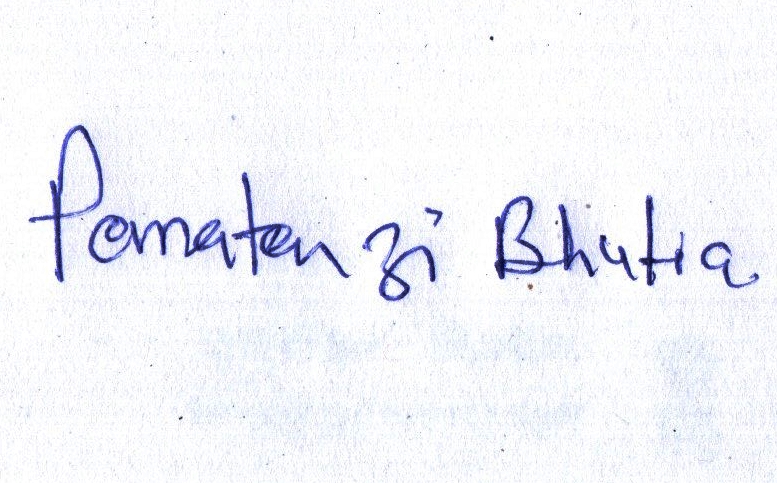 Pamatanzi Bhutia